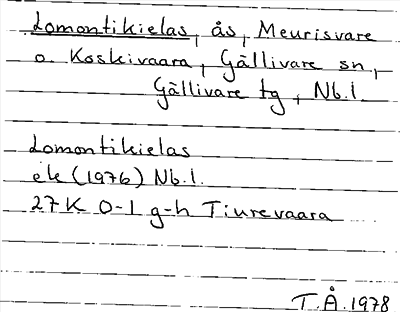 Lomontikielas, ås, Meurisvare
o. Koskivaara, Gällivare sn,
Gällivare tg, Nb.l.
Lomontikielas
ek (1976) Nb.l.
27K 0-1 g-h Tiurevaara
T.Å.1978